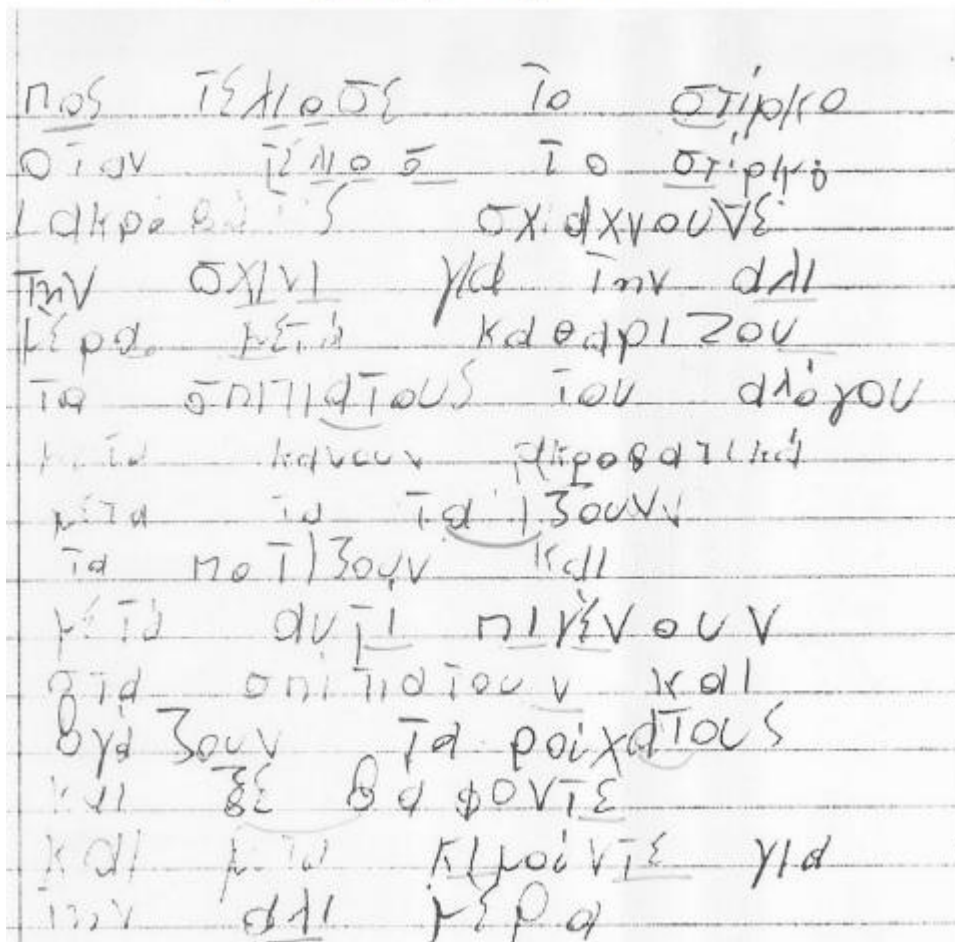 πος τελιοσε το στίρκο
οταν τελιοσ το στίρκο
ι ακροβατες σχιαχνουνε
την σχινι για την αλι
μερα μετά καθαριζου
τα σπιτιατους του αλόγου
μετα κανουν ακροβατικά
μετα τα ταΐζουνν
τα ποτίζουν και
μετά αυτι πιγένουν
στα σπίτιατουν και
βγάζουν τα ροίχατους
και ξε βαφοντε
και μτα κιμοίντε για
την αλι μέρα